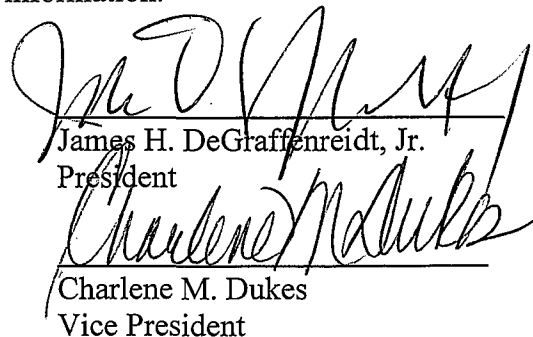 information.
James H. DeGraffenreidt, Jr.
President
Charlene M. Dukes
Charlene M. Dukes
Vice President